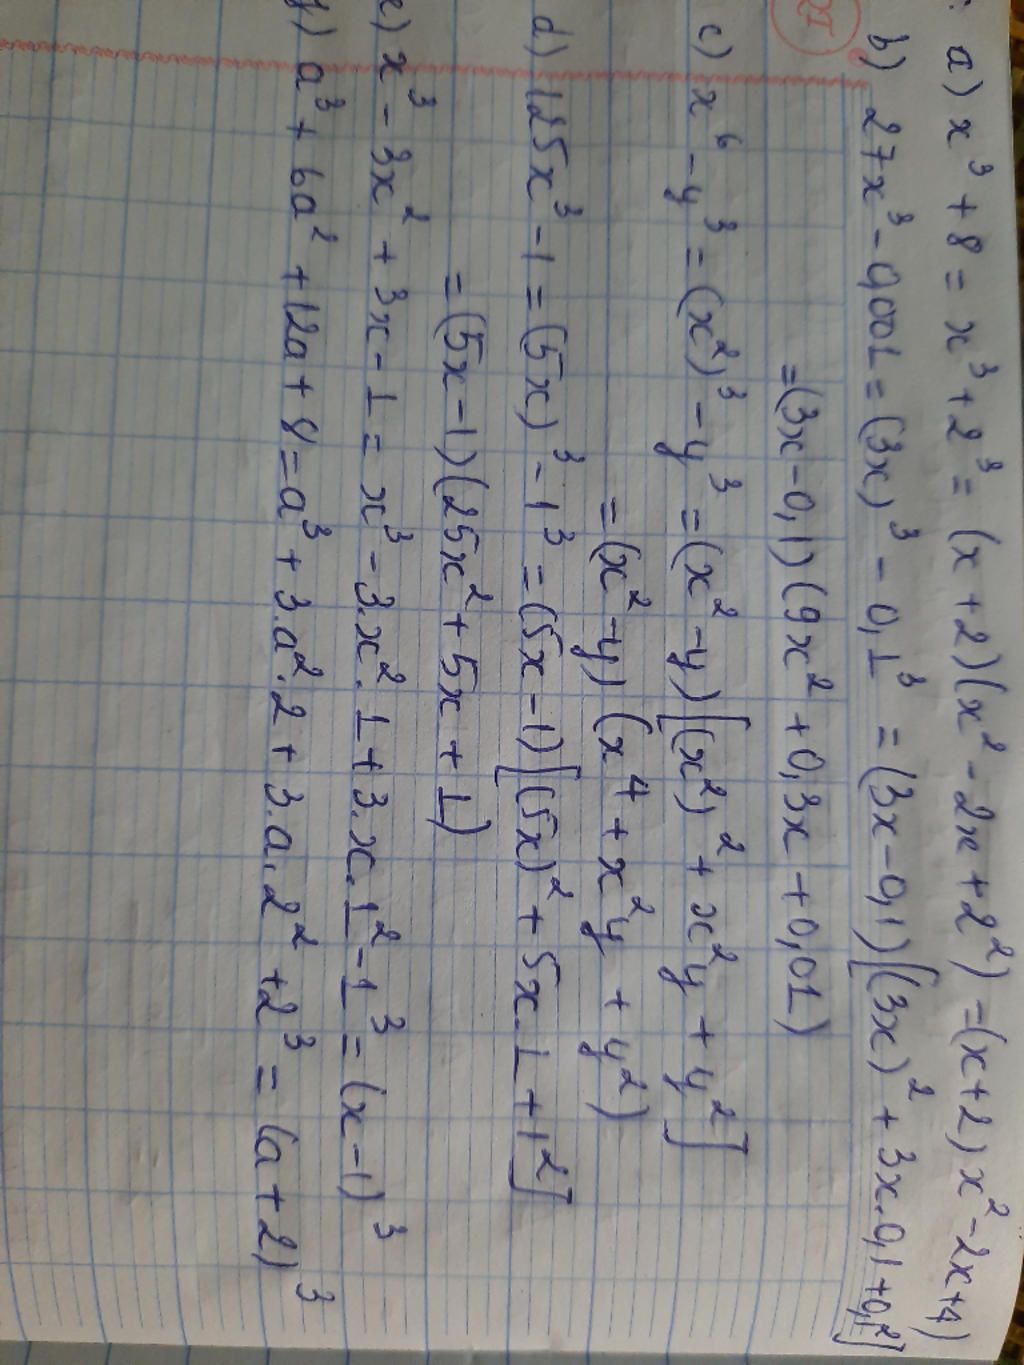 a) x³ + 8 = x³ + 2³ = (x + 2)(x² - 2x + 2²) = (x + 2) x² - 2x + 4)
b) 27x³ - 0,001 = (3x)³ - 0,1³ = (3x - 0,1)[(3x)² + 3x.0,1 + 0,1²]
= (3x - 0,1)(9x² + 0,3x + 0,01)
c) x⁶ - y³ = (x²)³ - y³ = (x² - y)[(x²)² + x²y + y²]
= (x² - y)(x⁴ + x²y + y²)
d) 125x³ - 1 = (5x)³ - 1³ = (5x - 1)[(5x)² + 5x.1 + 1²]
= (5x - 1)(25x² + 5x + 1)
e) x³ - 3x² + 3x - 1 = x³ - 3.x².1 + 3.x.1² - 1³ = (x - 1)³
) a³ + 6a² + 12a + 8 = a³ + 3.a².2 + 3.a.2² + 2³ = (a + 2)³